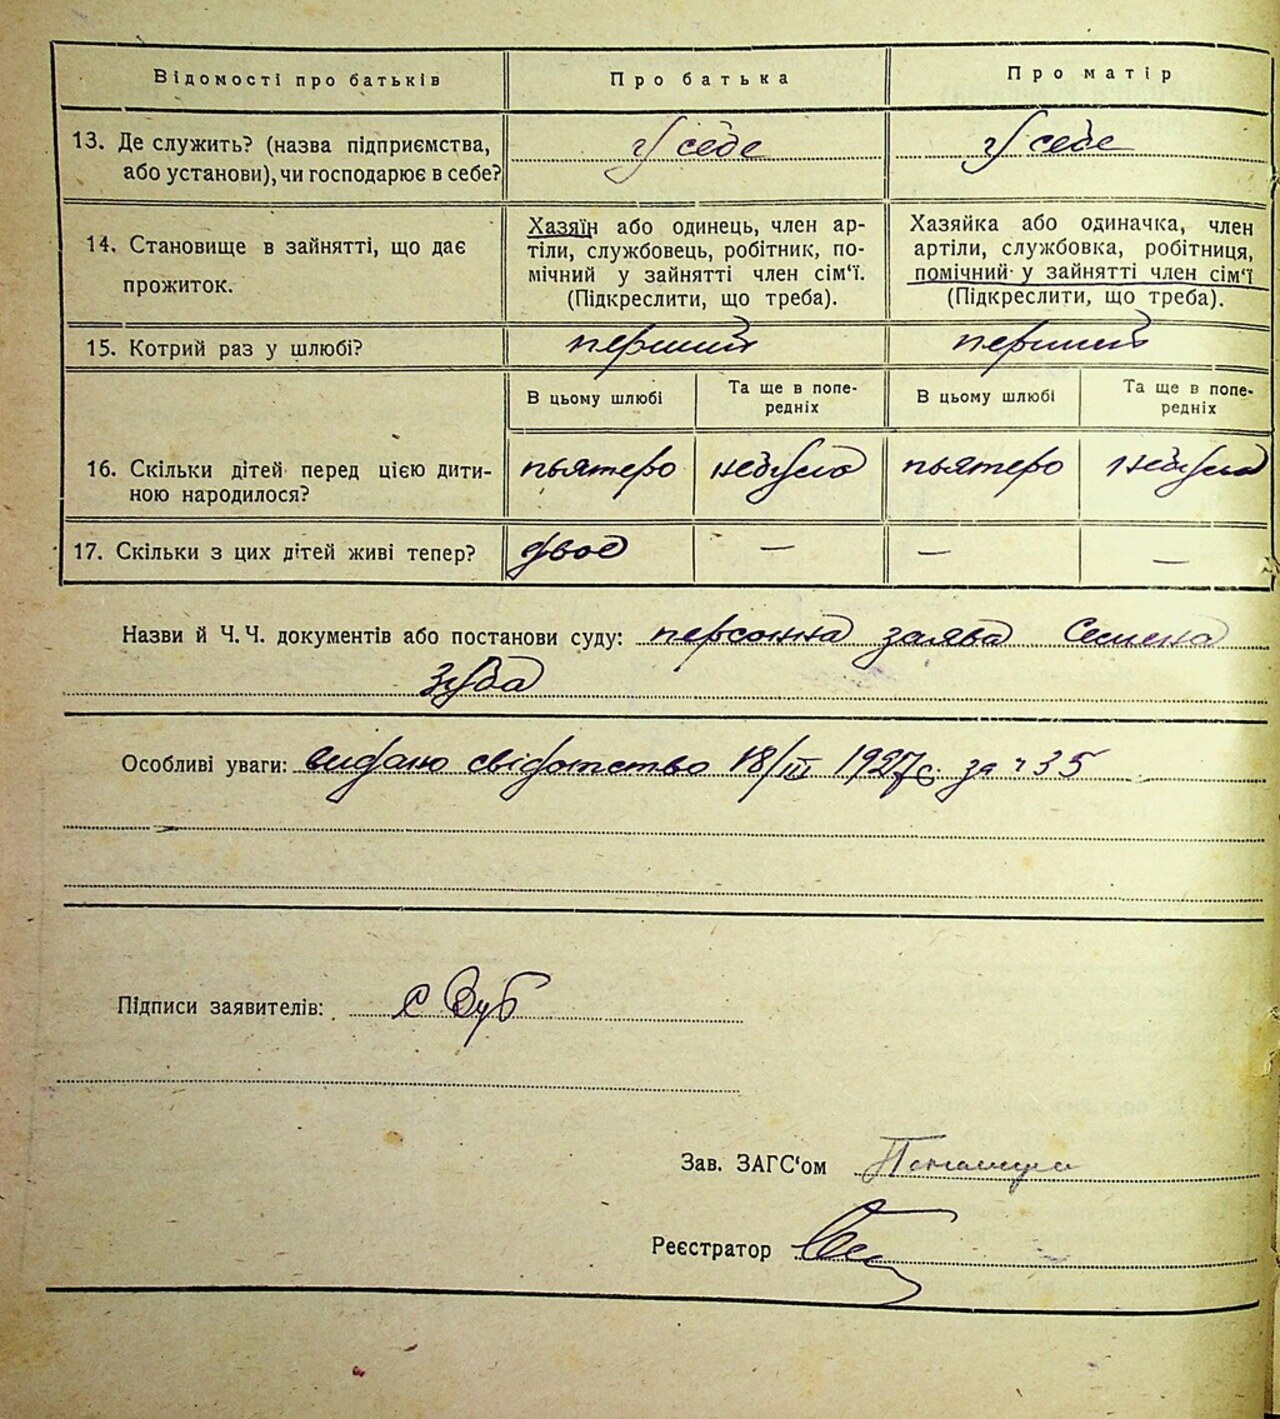 Відомості про батьків Про батька Про матір
13. Де служить? (назва підприємства, або установи), чи господарює в себе? У себе У себе
14. Становище в зайнятті, що дає прожиток.
Хазяїн або одинець, член ар-
тіли, службовець, робітник, по-
мічний у зайнятті член сім‘ї.
(Підкреслити, що треба).
Хазяйка або одиначка, член
артіли, службовка, робітниця,
помічний у зайнятті член сім‘ї
(Підкреслити, що треба).
15. Котрий раз у шлюбі? перший перший
В цьому шлюбі Та ще в попе-
редніх
В цьому шлюбі Та ще в попе-
редніх
16. Скільки дітей перед цією дити-
ною народилося? пьятеро небуло пьятеро небуло
17. Скільки з цих дітей живі тепер? двоє — — —
Назви й Ч. Ч. документів або постанови суду: персонна заява Семена
Зуба
Особливі уваги: видано свідотство 18/III 1927 за ч 35
Підписи заявителів: С Зуб
Зав. ЗАГС‘ом
Реєстратор